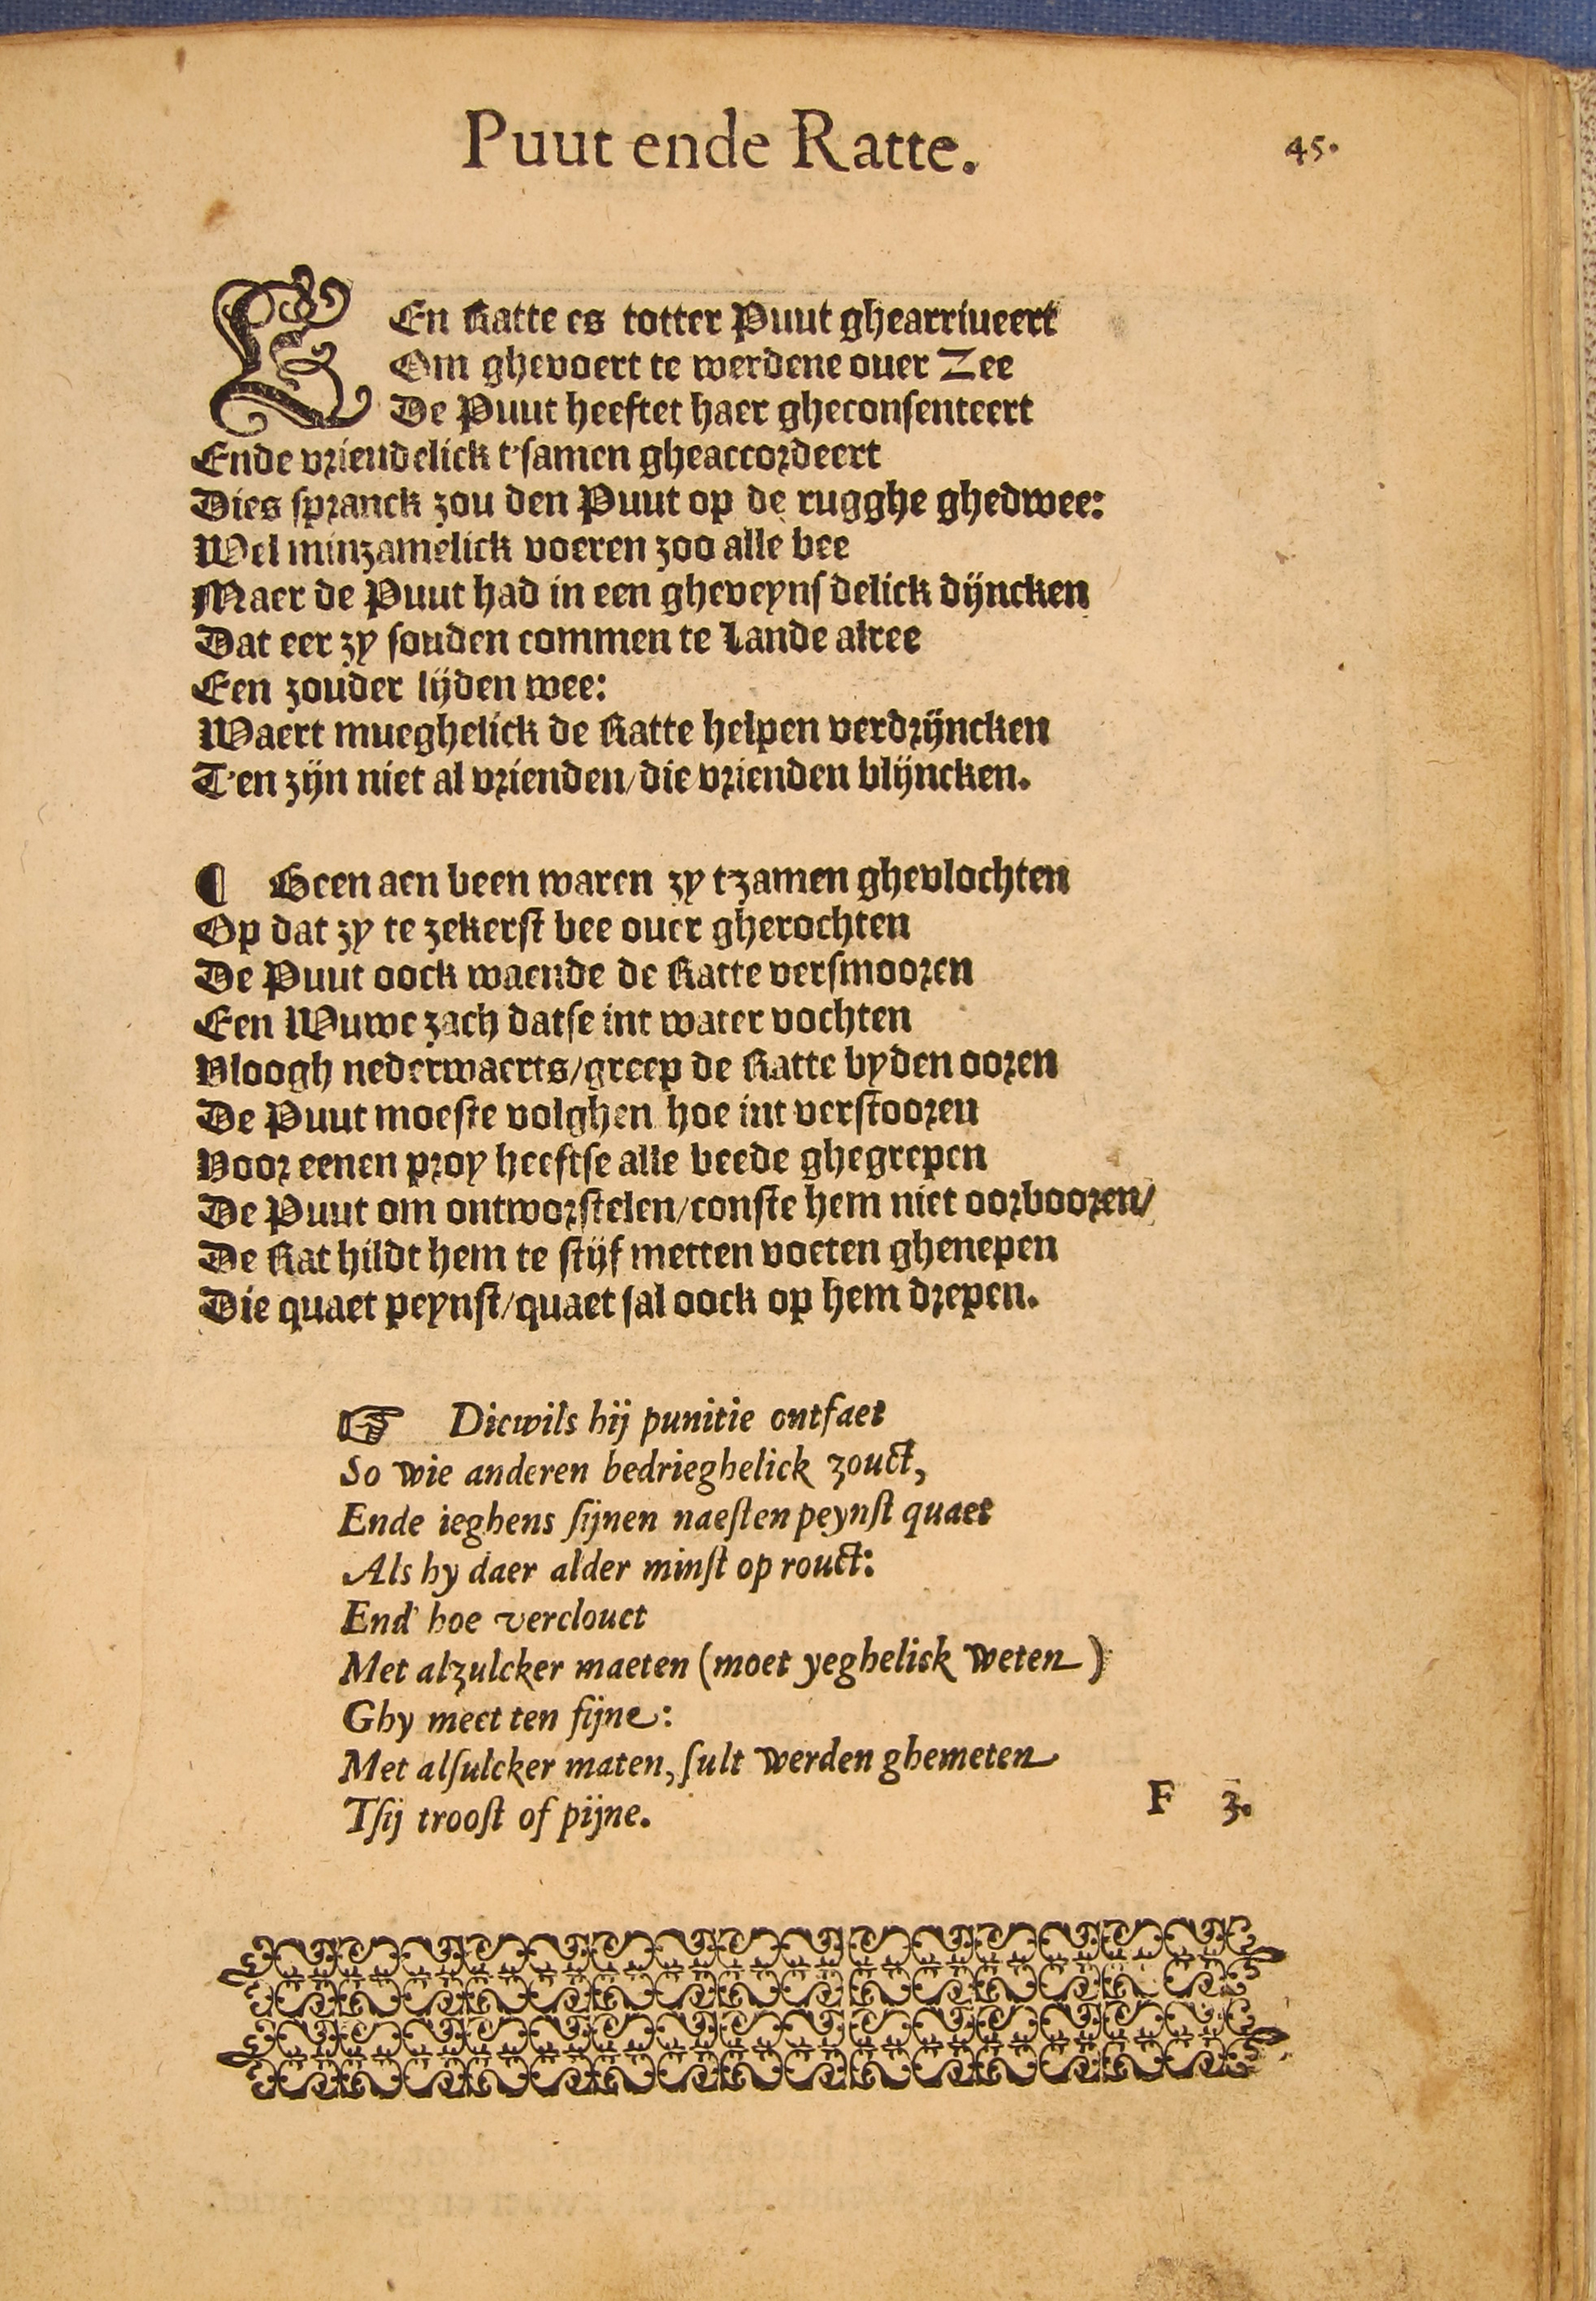 Puut ende Ratte.
45.
EEn Ratte es totter Puut ghearriueert
Om ghevoert te werdene ouer Zee
De Puut heeftet haer gheconsenteert
Ende vriendelick t'samen gheaccordeert
Dies spranck zou den Puut op de rugghe ghedwee:
Wel minzamelick voeren zoo alle bee
Maer de Puut had in een gheveynsdelick dijncken
Dat eer zy souden commen te Lande alree
Een zouder lijden wee:
Waert mueghelick de Ratte helpen verdrijncken
T'en zijn niet al vrienden/die vrienden blijncken.
¶ Been aen been waren zy t'zamen ghevlochten
Op dat zy te zekerst bee ouer gherochten
De Puut oock waende de Ratte versmooren
Een Wuwe zach datse int water vochten
Vloogh nederwaerts/greep de Ratte byden ooren
De Puut moeste volghen hoe int verstooren
Voor eenen proy heeftse alle beede ghegrepen
De Puut om ontworstelen/conste hem niet oorbooren/
De Rat hildt hem te stijf metten voeten ghenepen
Die quaet peynst/quaet sal oock op hem drepen.
☞ Dicwils hij punitie ontfaet
So wie anderen bedrieghelick zouct,
Ende ieghens sijnen naesten peynst quaet
Als hy daer alder minst op rouct:
End' hoe verclouct
Met alzulcker maeten (moet yeghelick weten)
Ghy meet ten fijne:
Met alsulcker maten, sult werden ghemeten
Tsij troost of pijne.
F 3.